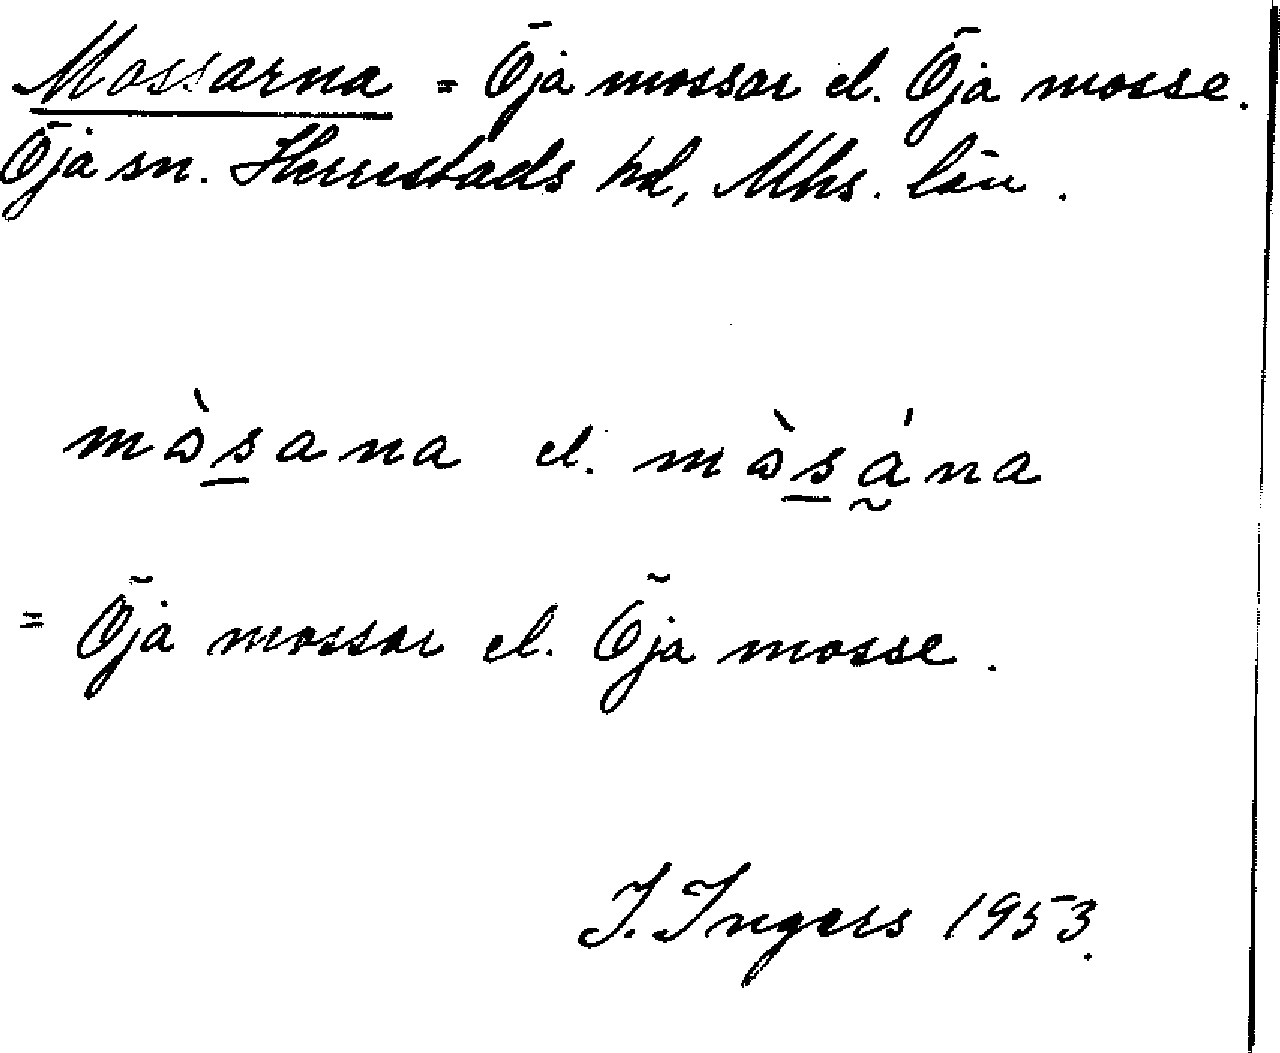 Mossarna = Öja mossar el. Öja mosse.
Öja sn. Herrestads hd, Mhs. län.
mòs̲ana el. mòs̲á̰na
= Öja mossar el. Öja mosse.
I. Ingers 1953.